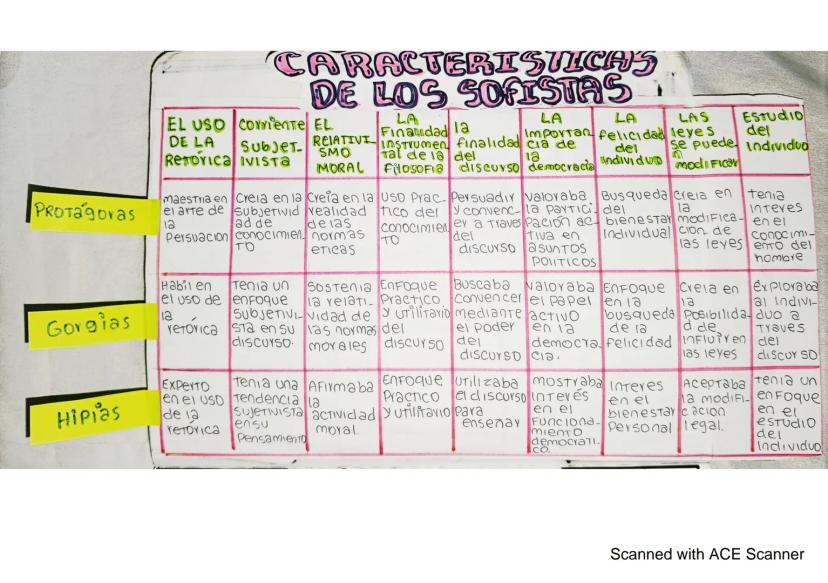 CARACTERISTICAS
DE LOS SOFISTAS
EL USO
DE LA
RETÓRICA
corriente
SUBJET-
IVISTA
EL
RELATIVI-
SMO
MORAL
LA
Finalidad
instrumen
tal de la
Filosofia
la
finalidad
del
discurso
LA
importan
cia de
la
democracia
LA
felicidad
del
individuo
LAS
leyes
se puede
n
modificar
EStUDIO
del
individuo
PROTÁGORAS
maestria en
el arte de
la
Persuacion
Creia en la
subjetivid
ad de
conocimien
TO
Creia en la
realidad
de las
normas
eticas
USO Prac-
tico del
conocimien
TO
Persuadir
y convenc-
er a traves
del
discurso
valoraba
la partici-
pación ac-
tiva en
asuntos
POLITICOS
Busqueda
del
bienestar
individual
creia en
la
modifica-
cion de
las leyes
tenia
interes
en el
conocimi-
ento del
hombre
Gorgias
Habil en
el uso de
la
retórica
Tenia un
enfoque
subjetivi-
sta en su
discurso.
Sostenia
la relati-
vidad de
las normas
morales
Enfoque
Practico
y utilitario
del
discurso
Buscaba
convencer
mediante
el poder
del
discurso
valoraba
el papel
activo
en la
democra-
cia.
Enfoque
en la
busqueda
de la
felicidad
Creia en
la
Posibilida
d de
influir en
las leyes
Exploraba
al indivi-
duo a
traves
del
discurso
HIPIAS
Experto
en el uso
de la
retórica
Tenia una
tendencia
sujetivista
en su
Pensamiento
Afirmaba
la
actividad
moral.
Enfoque
Practico
y utilitario
utilizaba
el discurso
para
enseñar
mostraba
interés
en el
Funciona-
miento
democrati-
co.
Interes
en el
bienestar
Personal
Aceptaba
la modifi-
cacion
legal.
tenia un
enfoque
en el
estudio
del
individuo
Scanned with ACE Scanner